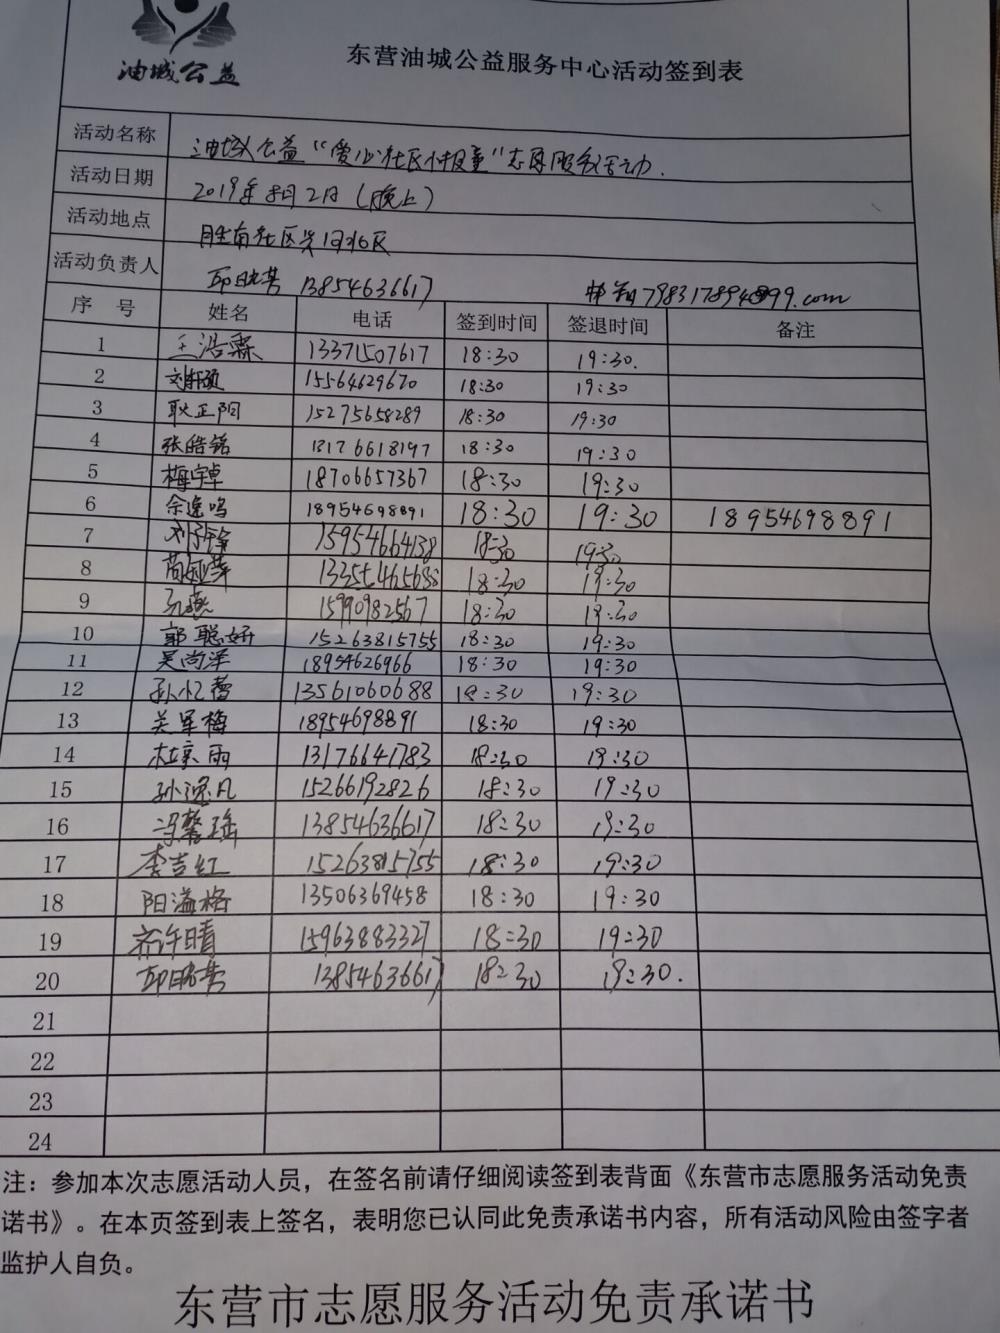 油城公益
东营油城公益服务中心活动签到表
活动名称 油城公益“爱心社区小报童”志愿服务活动.
活动日期 2019年8月2日(晚上)
活动地点 胜南社区兴河北区
活动负责人 邱晓燕 13854636617 邮箱798317894@99.com
序号 姓名 电话 签到时间 签退时间 备注
1 王浩霖 13371507617 18:30 19:30.
2 刘轩硕 15564629670 18:30 19:30
3 耿正阳 15275658289 18:30 19:30
4 张皓铭 13176618197 18:30 19:30
5 梅宇卓 18706657367 18:30 19:30
6 余逸鸣 18954698891 18:30 19:30 18954698891
7 刘子锋 15954664138 18:30 19:30
8 13355465688 18:30 19:30
9 孔燕 15990982567 18:30 19:30
10 郭聪妍 15263815755 18:30 19:30
11 吴尚泽 18954626966 18:30 19:30
12 孙忆蕾 13561060688 18:30 19:30
13 关军梅 18954698891 18:30 19:30
14 杜京雨 13176641783 18:30 19:30
15 孙逸凡 15266192826 18:30 19:30
16 冯馨瑶 13854636617 18:30 19:30
17 李吉红 15263815755 18:30 19:30
18 阳溢格 13506369458 18:30 19:30
19 许晴 15963883327 18:30 19:30
20 邱晓燕 13854636617 18:30 19:30.
21
22
23
24
注：参加本次志愿活动人员，在签名前请仔细阅读签到表背面《东营市志愿服务活动免责
诺书》。在本页签到表上签名，表明您已认同此免责承诺书内容，所有活动风险由签字者
监护人自负。
东营市志愿服务活动免责承诺书